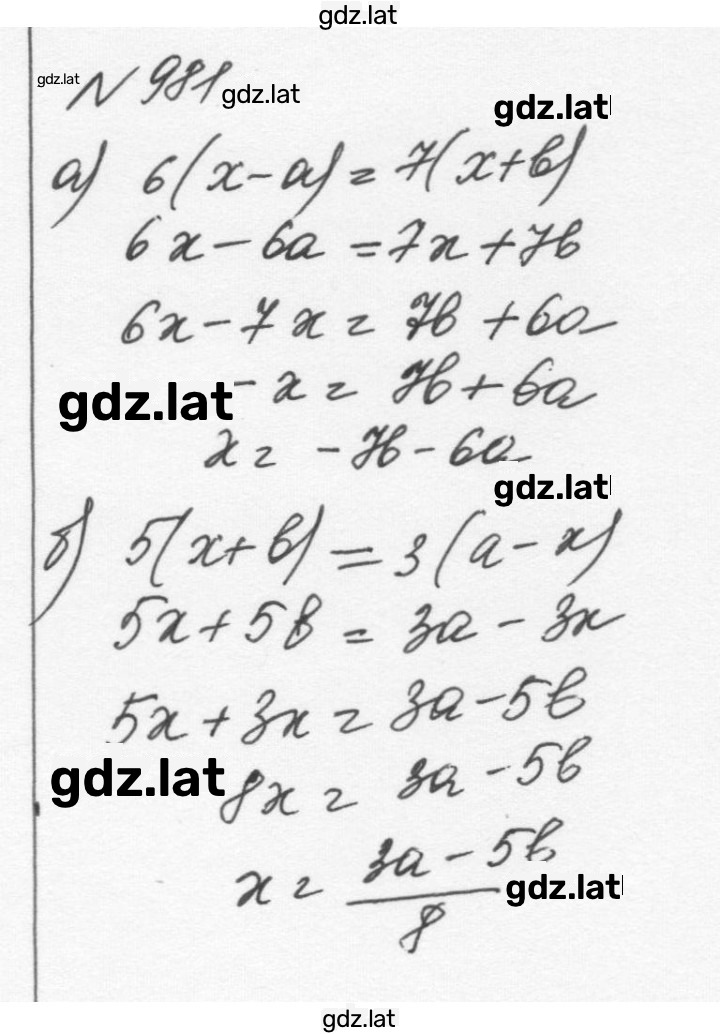 gdz.lat
gdz.lat
N 981
gdz.lat
gdz.lat
а) 6(x-a)=7(x+b)
6x-6a=7x+7b
6x-7x=7b+6a
gdz.lat
-x=7b+6a
x=-7b-6a
gdz.lat
б) 5(x+b)=3(a-x)
5x+5b=3a-3x
5x+3x=3a-5b
gdz.lat
8x=3a-5b
x=3a-5b
gdz.lat
8
gdz.lat